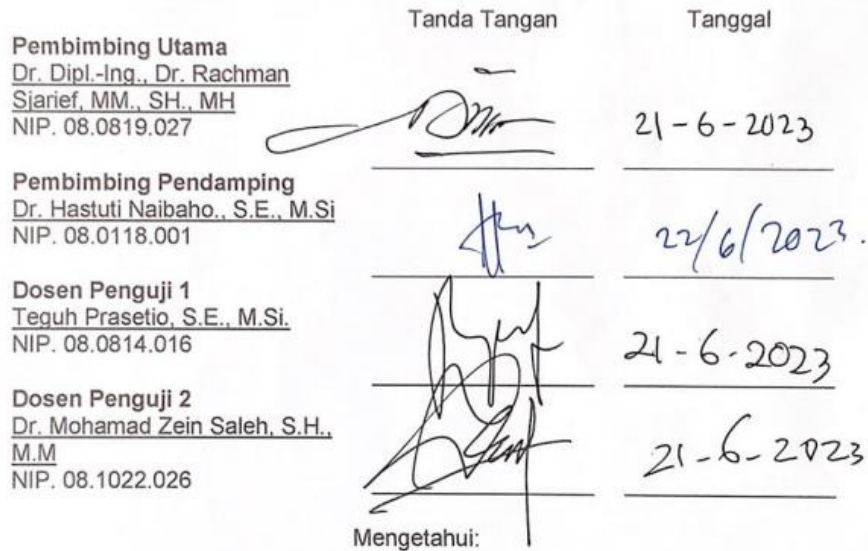 Tanda Tangan Tanggal
Pembimbing Utama
Dr. Dipl.-Ing., Dr. Rachman
Sjarief, MM., SH., MH
NIP. 08.0819.027
21-6-2023
Pembimbing Pendamping
Dr. Hastuti Naibaho., S.E., M.Si
NIP. 08.0118.001
22/6/2023.
Dosen Penguji 1
Teguh Prasetio, S.E., M.Si.
NIP. 08.0814.016
21-6-2023
Dosen Penguji 2
Dr. Mohamad Zein Saleh, S.H.,
M.M
NIP. 08.1022.026
21-6-2023
Mengetahui: